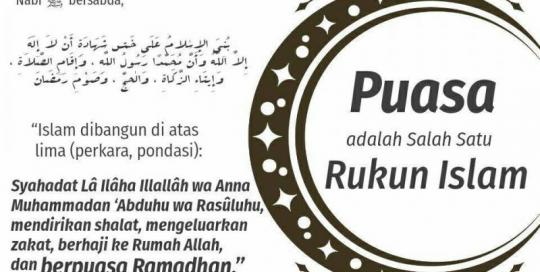 Nabi ﷺ bersabda,
بُنِيَ الإِسْلَامُ عَلَى خَمْسٍ شَهَادَةِ أَنْ لاَ إِلَهَ
إِلاَّ اللَّهُ وَأَنَّ مُحَمَّدًا رَسُولُ اللَّهِ ، وَإِقَامِ الصَّلاَةِ ،
وَإِيتَاءِ الزَّكَاةِ ، وَالْحَجِّ ، وَصَوْمِ رَمَضَانَ
“Islam dibangun di atas
lima (perkara, pondasi):
Syahadat Lâ Ilâha Illallâh wa Anna
Muhammadan ‘Abduhu wa Rasûluhu,
mendirikan shalat, mengeluarkan
zakat, berhaji ke Rumah Allah,
dan berpuasa Ramadhan.”
Puasa
adalah Salah Satu
Rukun Islam